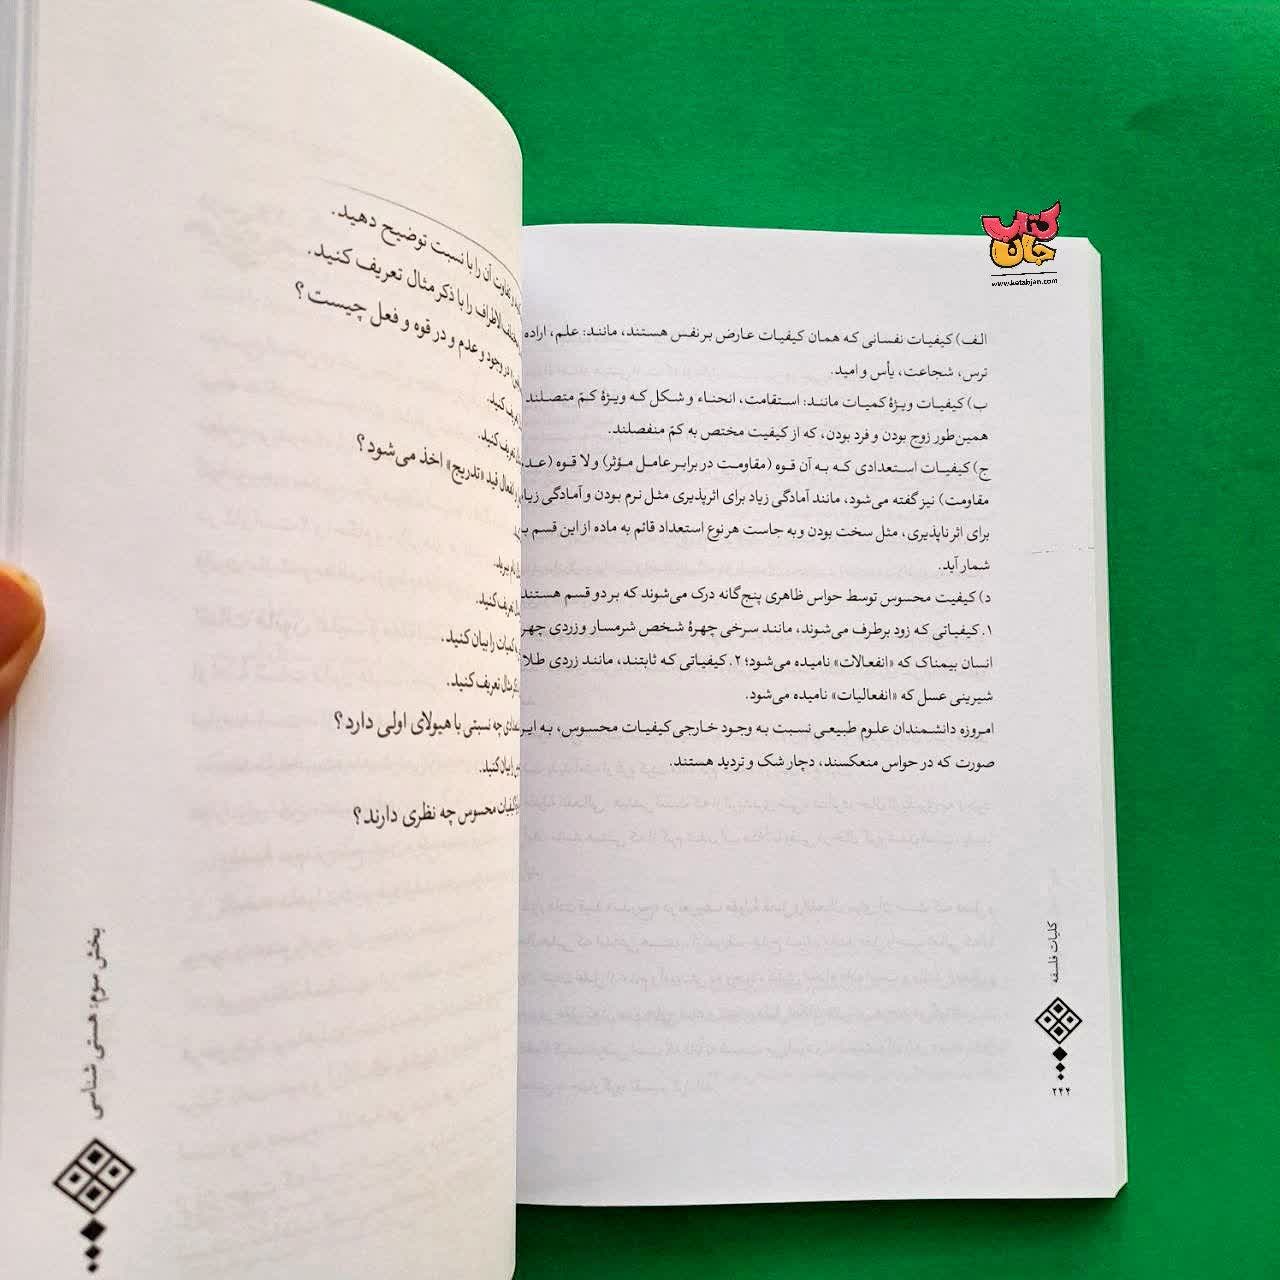 کتاب
جان
www.ketabjan.com
الف) کیفیات نفسانی که همان کیفیات عارض بر نفس هستند، مانند: علم، اراده
ترس، شجاعت، یأس و امید.
ب) کیفیات ویژهٔ کمیات مانند: استقامت، انحناء و شکل که ویژهٔ کمّ متصلند
همین‌طور زوج بودن و فرد بودن، که از کیفیت مختص به کمّ منفصلند.
ج) کیفیات استعدادی که به آن قوه (مقاومت در برابر عامل مؤثر) و لا قوه (عدم
مقاومت) نیز گفته می‌شود، مانند آمادگی زیاد برای اثرپذیری مثل نرم بودن و آمادگی زیاد
برای اثرناپذیری، مثل سخت بودن و به جاست هر نوع استعداد قائم به ماده از این قسم
شمار آید.
د) کیفیت محسوس توسط حواس ظاهری پنج‌گانه درک می‌شوند که بر دو قسم هستند
۱. کیفیاتی که زود برطرف می‌شوند، مانند سرخی چهرهٔ شخص شرمسار و زردی
انسان بیمناک که «انفعالات» نامیده می‌شود؛ ۲. کیفیاتی که ثابتند، مانند زردی طلا
شیرینی عسل که «انفعالیات» نامیده می‌شود.
امروزه دانشمندان علوم طبیعی نسبت به وجود خارجی کیفیات محسوس، به
صورت که در حواس منعکسند، دچار شک و تردید هستند.
کلیات فلسفه
۲۴۴
و تفاوت آن را با نسبت توضیح دهید.
الاطراف را با ذکر مثال تعریف کنید.
در وجود و عدم و در قوه و فعل چیست؟
تعریف کنید.
تعریف کنید.
انفعال قید «تدریج» اخذ می‌شود؟
نام ببرید.
تعریف کنید.
کمیات را بیان کنید.
مثال تعریف کنید.
چه نسبتی با هیولای اولی دارد؟
بیان کنید.
کیفیات محسوس چه نظری دارند؟
بخش سوم: هستی شناسی